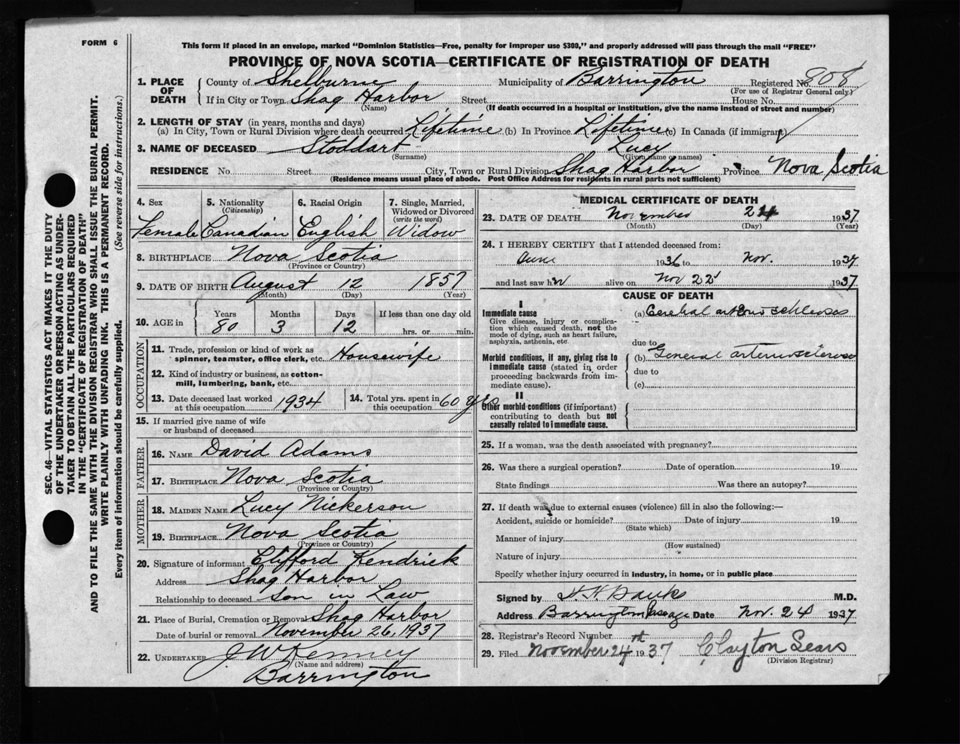 FORM 6
This form if placed in an envelope, marked "Dominion Statistics—Free, penalty for improper use $300," and properly addressed will pass through the mail "FREE"
PROVINCE OF NOVA SCOTIA—CERTIFICATE OF REGISTRATION OF DEATH
1. PLACE OF DEATH County of Shelburne Municipality of Barrington Registered No. 808
(For use of Registrar General only)
If in City or Town Shag Harbor Street House No.
(Name) (If death occurred in a hospital or institution, give the name instead of street and number)
2. LENGTH OF STAY (in years, months and days)
(a) In City, Town or Rural Division where death occurred Lifetime (b) In Province Lifetime (c) In Canada (if immigrant)
3. NAME OF DECEASED Stoddart Lucy
(Surname) (Given name or names)
RESIDENCE No. Street City, Town or Rural Division Shag Harbor Province Nova Scotia
(Residence means usual place of abode. Post Office Address for residents in rural parts not sufficient)
4. Sex Female
5. Nationality (Citizenship) Canadian
6. Racial Origin English
7. Single, Married, Widowed or Divorced (write the word) Widow
8. BIRTHPLACE Nova Scotia
(Province or Country)
9. DATE OF BIRTH August 12 1857
(Month) (Day) (Year)
10. AGE in Years Months Days If less than one day old
80 3 12 hrs. or min.
OCCUPATION
11. Trade, profession or kind of work as spinner, teamster, office clerk, etc. Housewife
12. Kind of industry or business, as cotton-mill, lumbering, bank, etc.
13. Date deceased last worked at this occupation 1934
14. Total yrs. spent in this occupation 60 yrs
15. If married give name of wife or husband of deceased
FATHER
16. NAME David Adams
17. BIRTHPLACE Nova Scotia
(Province or Country)
MOTHER
18. MAIDEN NAME Lucy Nickerson
19. BIRTHPLACE Nova Scotia
(Province or Country)
20. Signature of informant Clifford Kendrick
Address Shag Harbor
Relationship to deceased Son in Law
21. Place of Burial, Cremation or Removal Shag Harbor
Date of burial or removal November 26, 1937
22. UNDERTAKER J W Kenney
(Name and address)
Barrington
MEDICAL CERTIFICATE OF DEATH
23. DATE OF DEATH November 24 1937
(Month) (Day) (Year)
24. I HEREBY CERTIFY that I attended deceased from:
June 1936 to Nov. 1937
and last saw her alive on Nov 22 1937
CAUSE OF DEATH
I
Immediate cause
Give disease, injury or complication which caused death, not the mode of dying, such as heart failure, asphyxia, asthenia, etc.
(a) Cerebral arterio sclerosis
due to
Morbid conditions, if any, giving rise to immediate cause (stated in order proceeding backwards from immediate cause).
(b) General arteriosclerosis
due to
(c)
II
Other morbid conditions (if important) contributing to death but not causally related to immediate cause.
25. If a woman, was the death associated with pregnancy?
26. Was there a surgical operation? Date of operation 19
State findings Was there an autopsy?
27. If death was due to external causes (violence) fill in also the following:—
Accident, suicide or homicide? Date of injury 19
(State which)
Manner of injury
(How sustained)
Nature of injury
Specify whether injury occurred in industry, in home, or in public place
Signed by M.D.
Address Barrington Passage Date Nov. 24 1937
28. Registrar's Record Number
29. Filed November 24th 1937 Clayton Sears
(Division Registrar)
SEC. 46—VITAL STATISTICS ACT MAKES IT THE DUTY
OF THE UNDERTAKER OR PERSON ACTING AS UNDER-
TAKER TO OBTAIN ALL THE PARTICULARS REQUIRED
IN THE "CERTIFICATE OF REGISTRATION OF DEATH"
AND TO FILE THE SAME WITH THE DIVISION REGISTRAR WHO SHALL ISSUE THE BURIAL PERMIT.
WRITE PLAINLY WITH UNFADING INK. THIS IS A PERMANENT RECORD.
Every item of information should be carefully supplied. (See reverse side for instructions.)